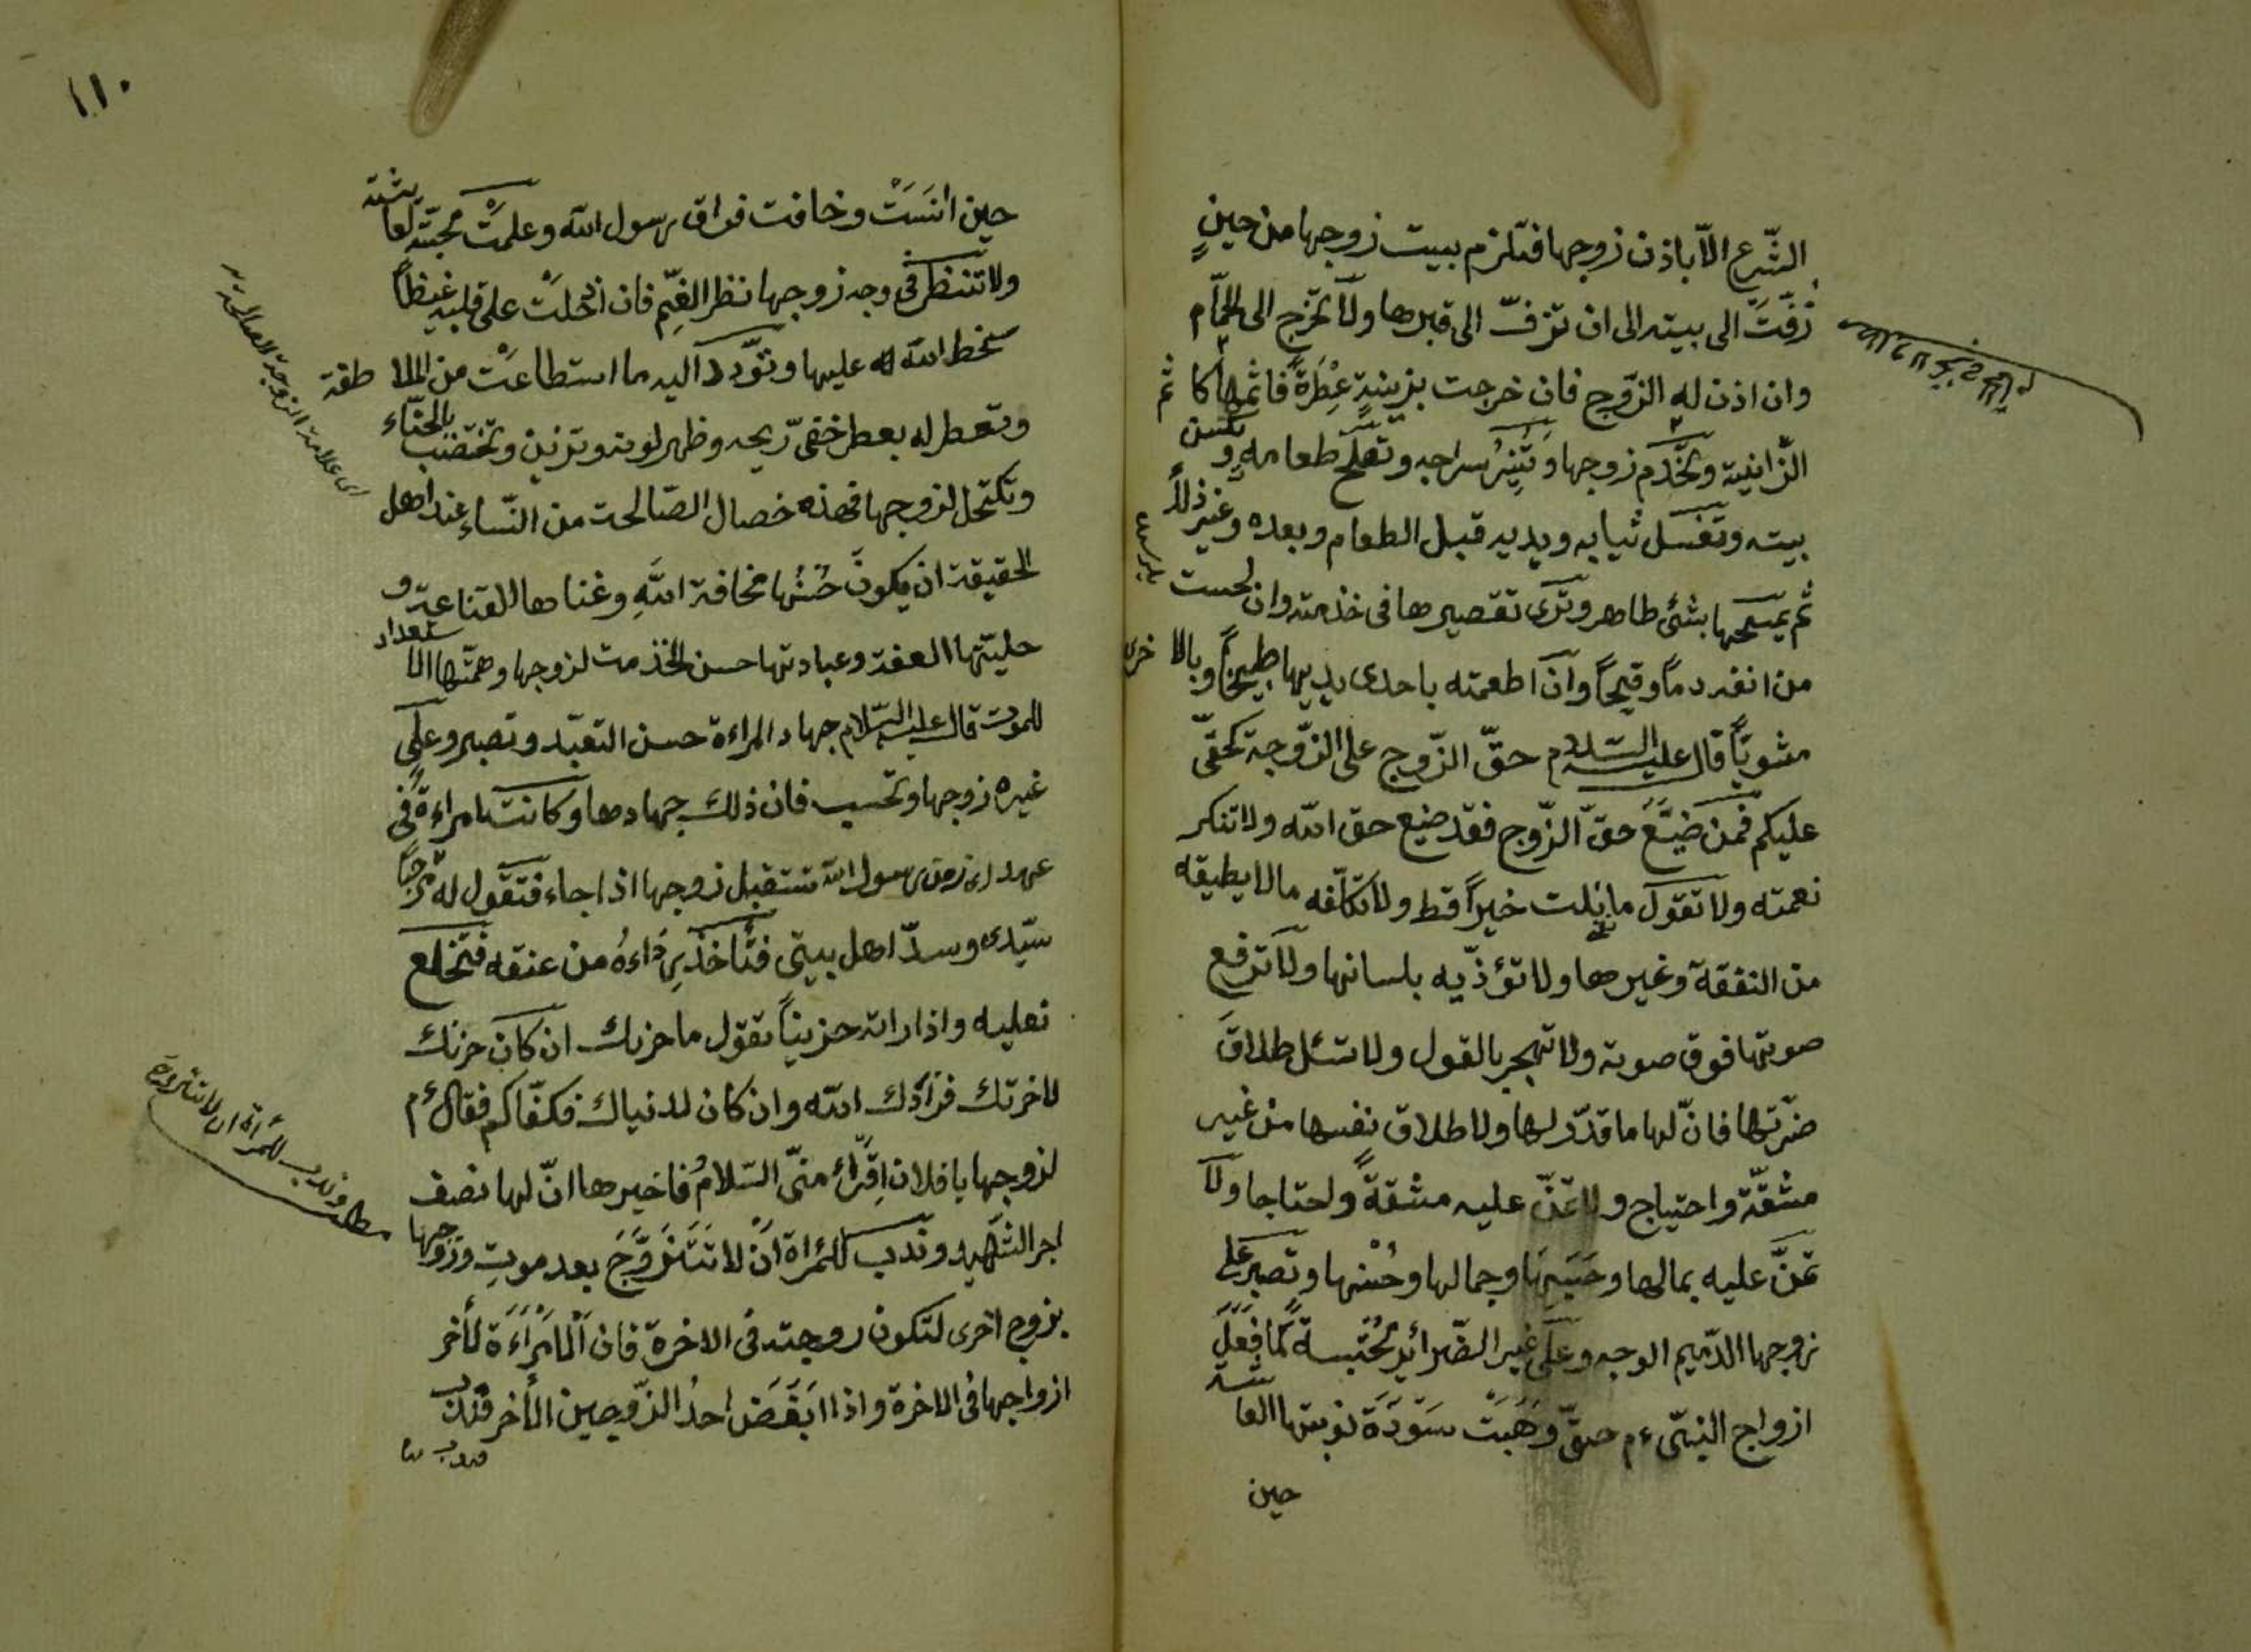 الشّرع الّا باذن زوجها فتلزم ببيت زوجها من حينٍ
زفّت الى بيته الى ان تزفّ الى قبرها ولا تخرج الى الحمّام
وان اذن له الزّوج فان خرجت بزينةٍ عطرةً فاثمها كاثم
الزّانية وتخدم زوجها وتنير سراجه وتصلح طعامه وتكنس
بيته وتغسل ثيابه ويديه قبل الطعام وبعده وغير ذلك
ثم يمسحها بشئ طاهر وترى تقصيرها فى خدمته وان لحست
من انفه دماً وقيحاً وان اطعمته باحدى يديها طبيخاً وبالاخرى
مشويّاً قال عليه السّلام حقّ الزّوج على الزّوجة كحقّى
عليكم فمن ضيّع حقّ الزّوج فقد ضيع حق الله ولا تنكر
نعمته ولا تقول ما نلت خيراً قط ولا تكلّفه مالا يطيقه
من النفقة وغيرها ولا تؤذّيه بلسانها ولا ترفع
صوتها فوق صوته ولا تجهر بالقول ولا تسئل طلاق
ضرّتها فانّ لها ما قدّر لها ولا طلاق نفسها من غير
مشقّة واحتياج ولا عليه مشقةً واحتاجا ولا
تمنّ عليه بمالها وجمالها وحسنها وتصبر على
زوجها الدّميم الوجه وعلى غير الضّرائر محتسبة كما فعل
ازواج النبّى ءم حتّى وهبت سودة نوبتها لعائشة
حين
١١٠
حين انست وخافت فراق رسول الله وعلمت محبّته لعائشة
ولا تنظر فى وجه زوجها نظر الغيم فان ادخلت على قلبه غيظاً
سخط الله عليها وتودّد اليه ما استطاعت من الملاطفة
وتعطر له بعطر خفى ريحه وظهر لونه وتزين وتختضب بالحنّاء
وتكتحل لزوجها فهذه خصال الصّالحة من النّساء عند اهل
الحقيقة ان يكون حسنها مخافة الله وغناها القناعة و
حليتها العفة وعبادتها حسن الخدمت لزوجها وهمّتها الاستعداد
للموت قال عليه السّلام جهاد المراءة حسن التعبّد وتصبر وعلى
غيره زوجها وتحسب فان ذلك جهادها وكانت امراءة فى
عهد اى زمن رسول الله تستقبل زوجها اذا جاء فتقول له مرحبا
سيّدى وسيد اهل بيتى فتأخذ رداءه من عنقه فتخلع
نعليه واذا راته حزيناً تقول ما حزنك ان كان حزنك
لاخرتك فزادك الله وان كان لدنياك فكفّاكم فقال ءم
لزوجها يا فلان اقرأ منّى السّلام فاخبرها انّ لها نصف
اجر الشّهيد وندب للمراة ان لا تتزوّج بعد موت زوجها
بزوج اخرى لتكون زوجته فى الاخرة فان المراءة لأخر
ازواجها فى الاخرة واذا ابغض احد الزّوجين الأخر فندب
اى علامة الزوجة الصالحة
مطلب وندب للمرأة ان لا تتزوج